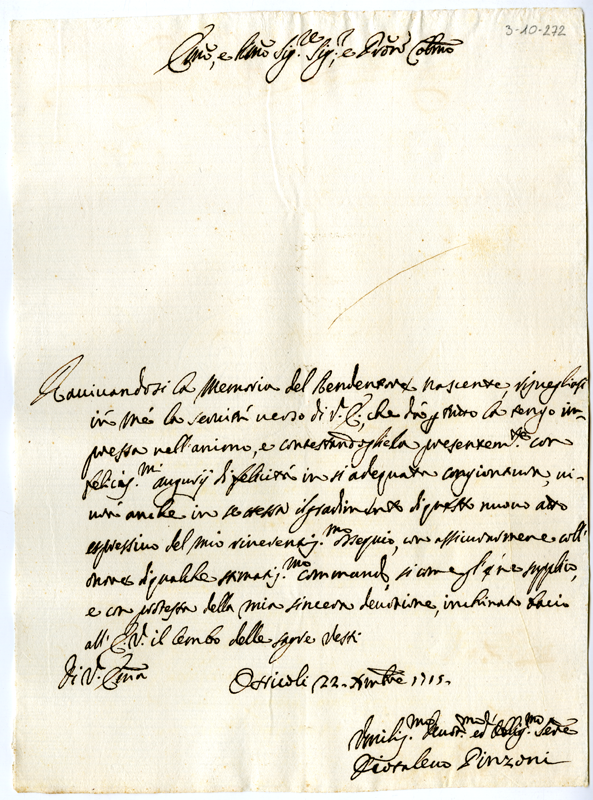 3-10-272
Emo, e Rmo Sig.re Sig.r, e Pròn Colmo
Ravivandosi la Memoria del Redentore nascente, risvegliasi
in me la servitù verso di V. E., che di già tengo im-
pressa nell'animo, e contestandogliela presentem.te con
felicis.mi augurij di felicità in sì adequata congiontura, vi-
avrà anche in se stessa il gradimento di questo nuovo atto
espressivo del mio riverentis.mo ossequio, con assicurarmene coll'
onore di qualche stimatis.mo commando, sì come gliene supplico,
e con protesta della mia sincera devotione, inchinato bacio
all'E. V. il lembo delle sagre vesti
Di V. Ema Otricoli 22. Xmbre 1715.
Umilis.mo Devot.mo ed Oblig.mo Serre
Pinzoni